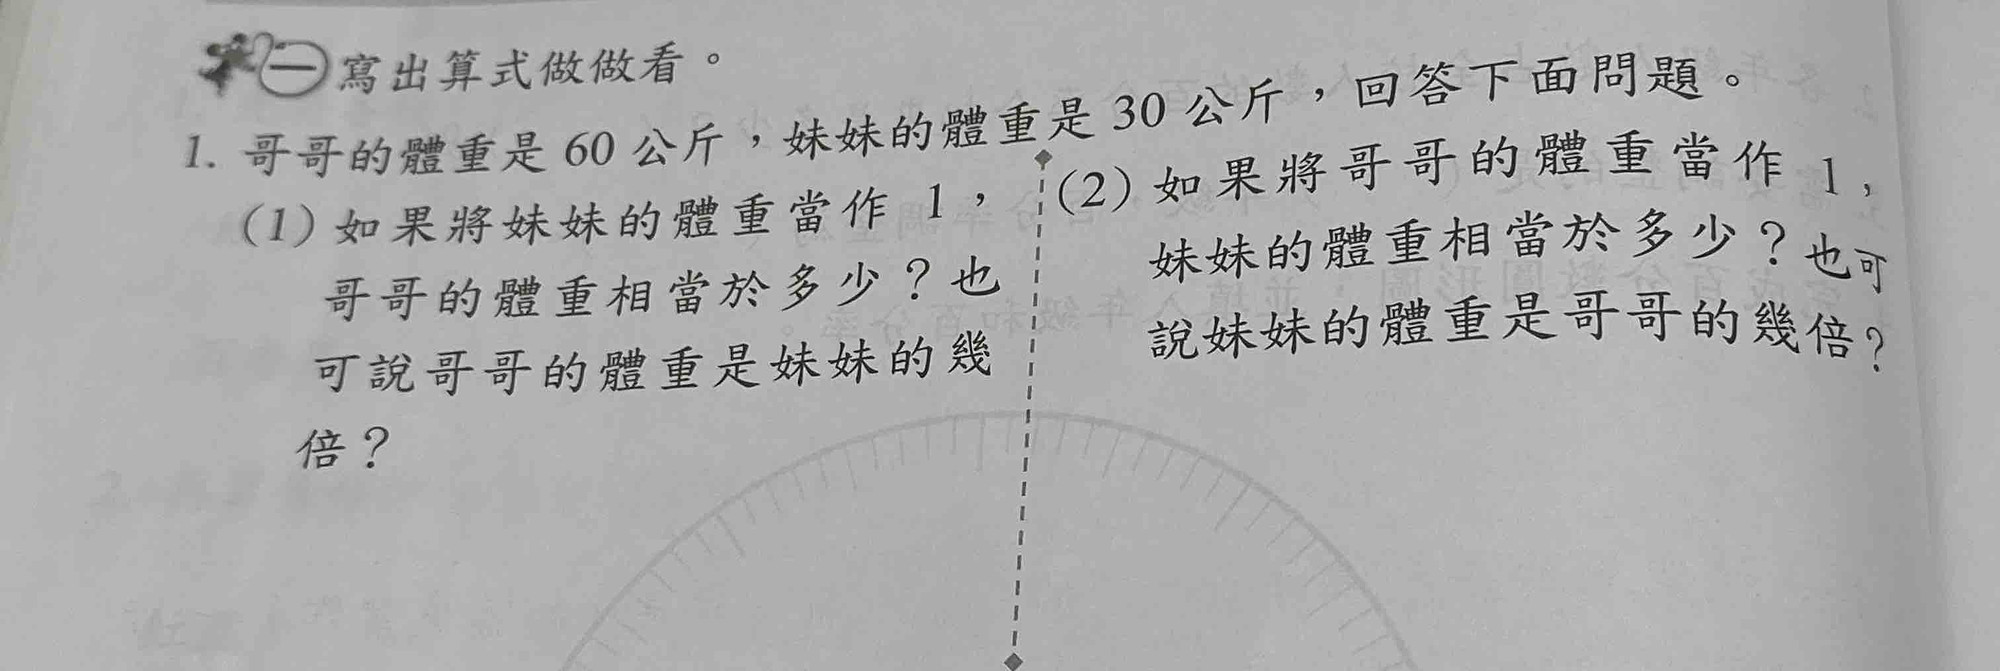 ㊀寫出算式做做看。
1. 哥哥的體重是 60 公斤，妹妹的體重是 30 公斤，回答下面問題。
(1) 如果將妹妹的體重當作 1，
哥哥的體重相當於多少？也
可說哥哥的體重是妹妹的幾
倍？
(2) 如果將哥哥的體重當作 1，
妹妹的體重相當於多少？也可
說妹妹的體重是哥哥的幾倍？